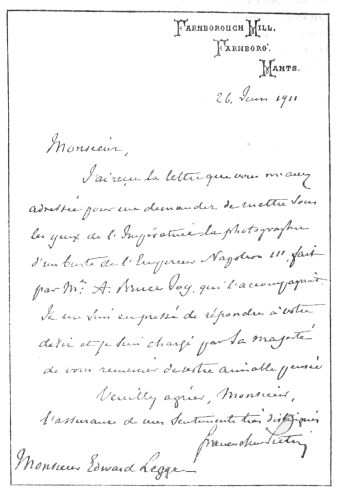 Farnborough Hill,
Farnboro'.
Hants.
26. Juin 1911
Monsieur,
J'ai reçu la lettre que vous m'avez
adressée pour me demander de mettre sous
les yeux de l'Impératrice la photographie
d'un buste de l'Empereur Napoléon III, fait
par Mr. A. Bruce Joy, qui l'accompagnait.
Je me suis empressé de répondre à votre
désir et je suis chargé par Sa Majesté
de vous remercier de votre aimable pensée
Veuillez agréer, Monsieur,
l'assurance de mes Sentiments très distingués
Franceschini Pietri
Monsieur Edward Legge